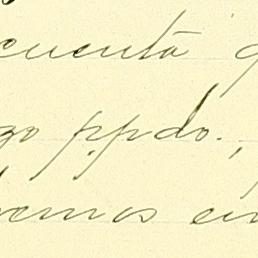 cuenta q
go ppdo.,
emos en